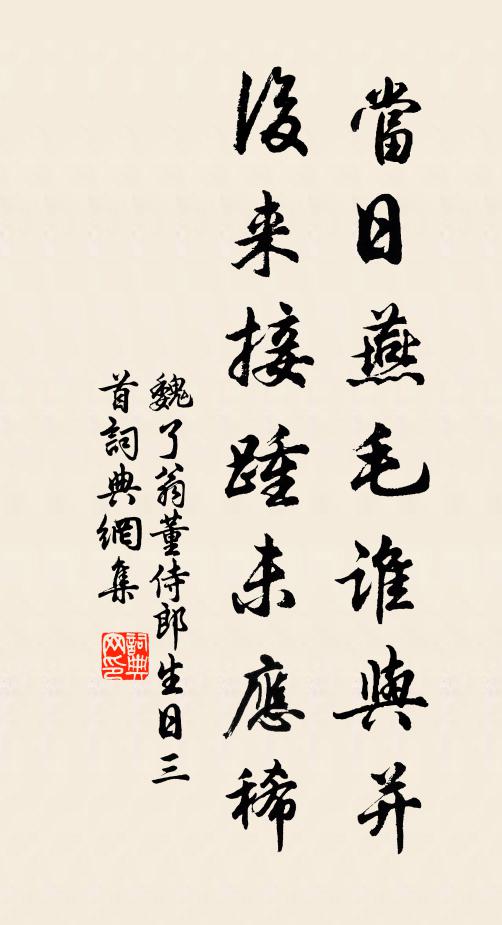 當日燕毛谁與并
後来接踵未應稀
魏了翁董侍郎生日三
首詞典網集
詞典
网印